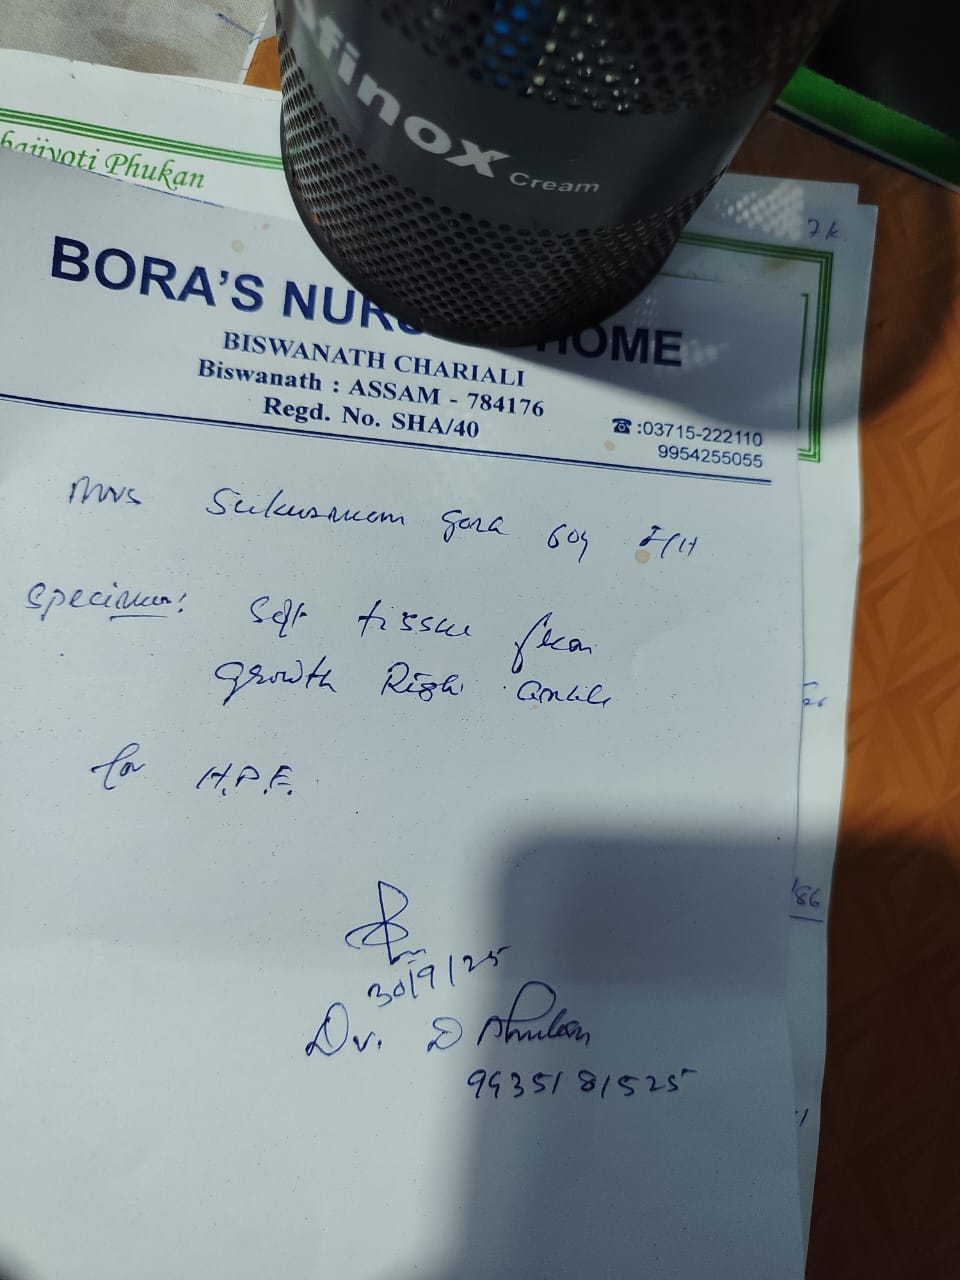 finox Cream
bajjyoti Phukan
BORA'S NUR HOME
BISWANATH CHARIALI
Biswanath : ASSAM - 784176
Regd. No. SHA/40
☎:03715-222110
9954255055
Mrs gora 60y F/H
Specimen: Soft tissue from
growth Right ankle
for H.P.E.
30/9/25
Dr. D Phukan
9435181525
86